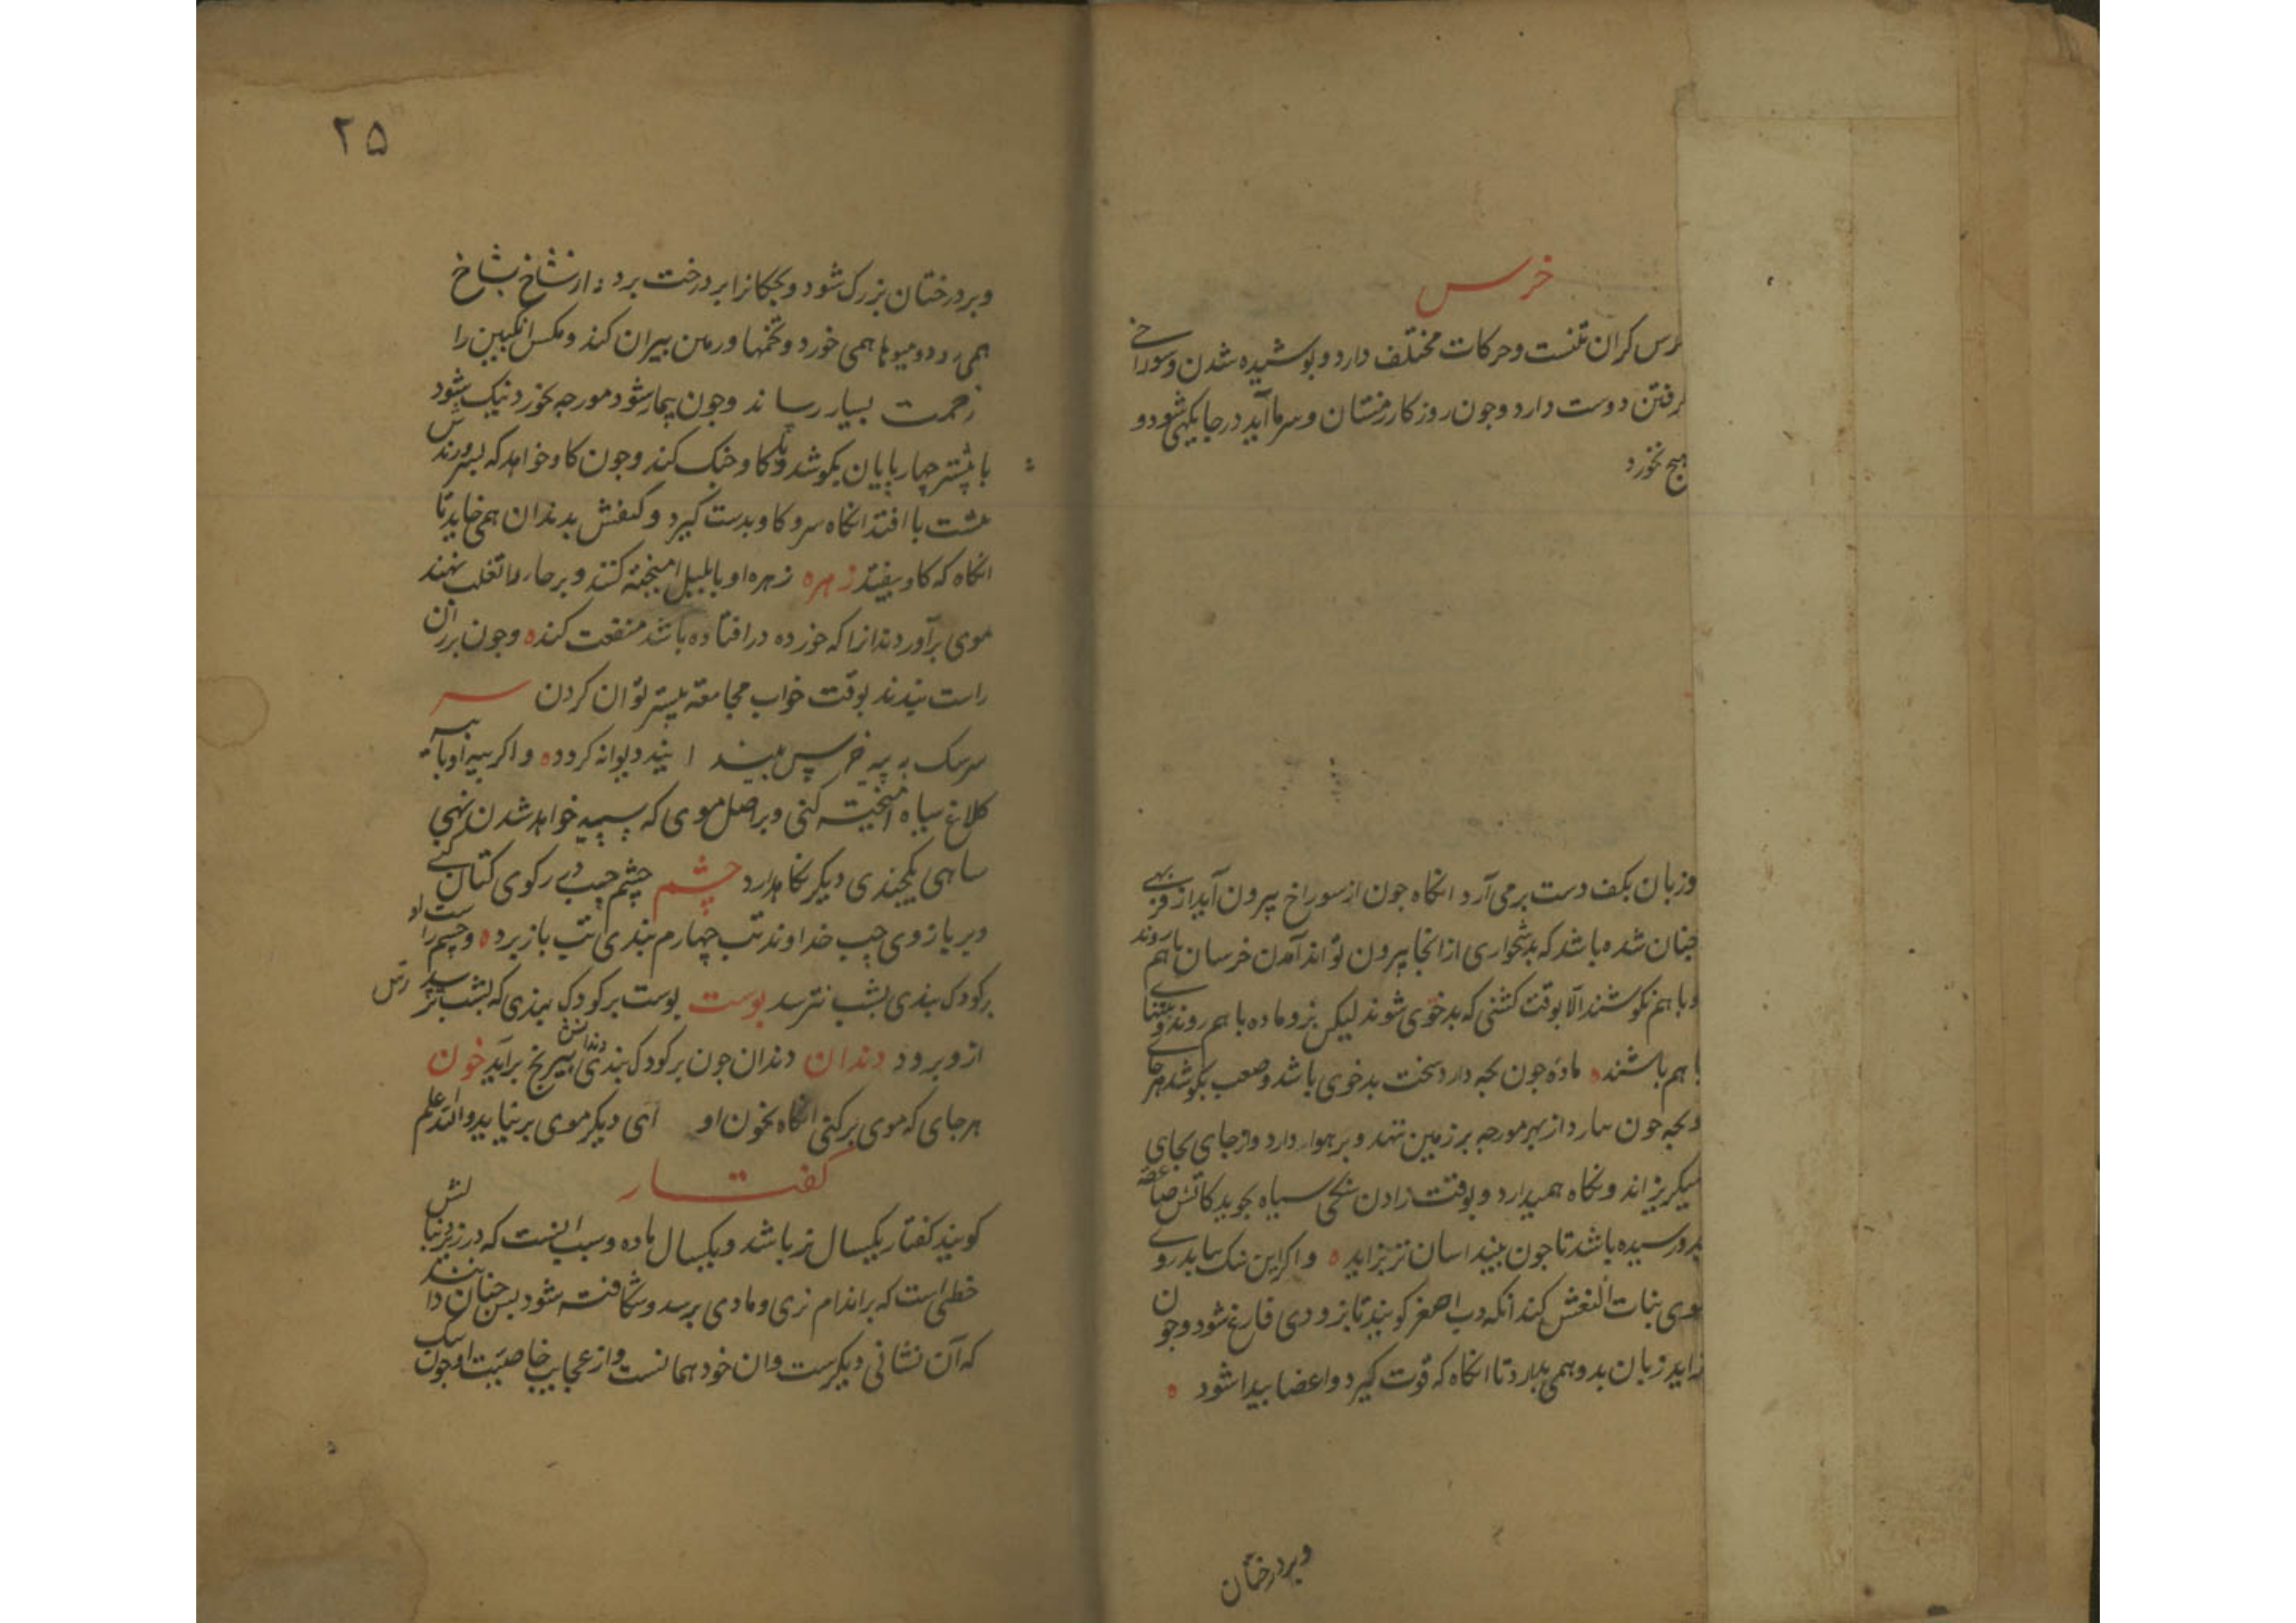 خرس
خرس کران تنست وحرکات مختلف دارد وپوشیده شدن وسوراخ
کرفتن دوست دارد وجون روزکار زمستان وسرما آید در جایکهی شود و
هیج نخورد
وزبان بکف دست برمی آرد انکاه جون از سوراخ بیرون آید از فربهی
جنان شده باشد که بدشخواری از انجا بیرون تواند آمدن خرسان با هم روند
وبا هم نکوشند الا بوقت کشنی که بدخوی شوند لیکن نر وماده با هم روند وتنها
با هم باشند ماده جون بجه دارد سخت بدخوی باشد وصعب بکوشد هر جای
وبجه جون بیارد از بهر مورجه بر زمین ننهد وبر هوا دارد واز جای بجای
میکریزاند ونکاه همیدارد وبوقت زادن سنکی سیاه بجوید کاتش صاعقه
بدو رسیده باشد تا جون بیند اسان تر بزاید واکر این سنک نیابد روی
سوی بنات النعش کند آنکه دب اصغر کویند تا بزودی فارغ شود وجون
زاید زبان بدو همی مالد تا انکاه که قوت کیرد واعضا بیدا شود
وبر درختان
۲۵
وبر درختان بزرک شود وبجکانرا بر درخت برد از شاخ بشاخ
همی رود ومیوها همی خورد وتخمها ورمن بیران کند ومکس انکبین را
زحمت بسیار رساند وجون بیمار شود مورجه بخورد نیک شود
با بیشتر چهار پایان بکوشد وبا کاو جنک کند وجون کاو خواهد که بسرورندش
بشت باز افتد انکاه سرو کاو بدست کیرد وکتفش بدندان همی خاید تا
انکاه که کاو بیفتد زهره زهره او با بلبل امیخته کنند وبر داء الثعلب نهند
موی برآورد ندانرا که خورده در افتاده باشد منفعت کند وجون بر ران
راست بندند بوقت خواب مجامعة بیشتر توان کردن سر
سر سک به پیه خرس بیند دیوانه کردد واکر بیه او با بیه
کلاغ سیاه امیخته کنی وبر اصل موی که سپید خواهد شدن نهی
سیاهی یکچندی دیکر نکاهدارد چشم چشم چپ وی در رکوی کتان کنی
وبر بازوی چپ خداوند تب چهارم بندی تب باز برد وچشم راست او
بر کودک بندی بشب نترسد بوست بوست بر کودک بندی که بشب ترسد ترس
ازو برود دندان دندان جون بر کودک بندی دندانش بی رنج برآید خون
هر جای که موی برکنی انکاه بخون او دیکر موی برنیاید والله اعلم
کفتار
کویند کفتار یکسال نر باشد ویکسال ماده وسبب اینست که در زیر دنبالش
خطی است که براندام نری ومادی برسد وشکافته شود بس جنان دانند
که آن نشانی دیکرست وان خود همانست واز عجایب خاصیت او جون سک